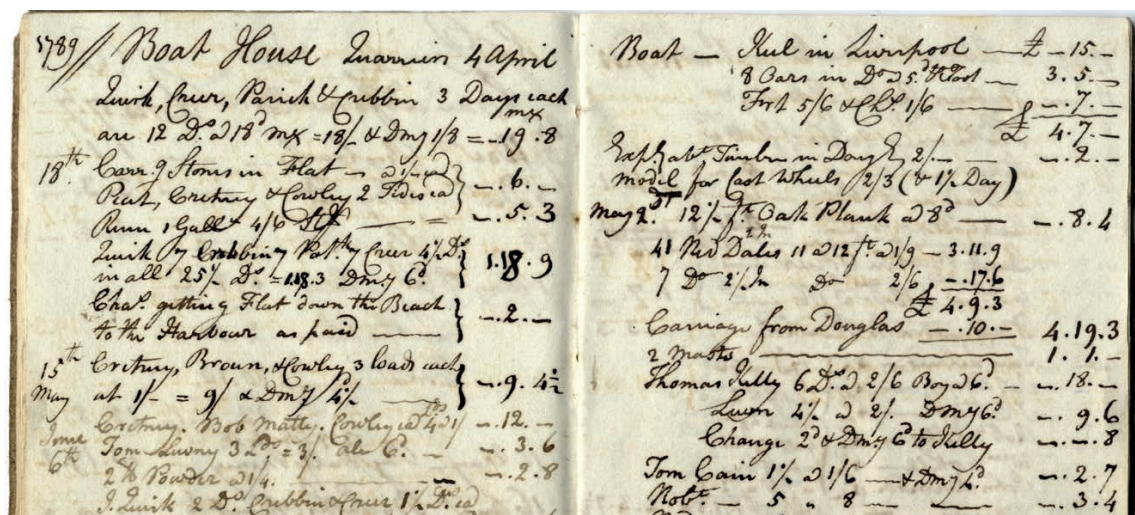 1789 // Boat House Quarriers 4 April
Quirk, Creer, Parick & Cribbin 3 Days each
are 12 Ds. @ 18d mx = 18/- & Dmy 1/8 = -.19.8
18th Carr.g Stones in Flat
Cretney & Cowley 2 Tides ea } -.6.-
Rum 1 Gall 4/6 -.5.3
Quirk 7 Cribbin 7 Pat.k 7 Creer 4½ Ds.
in all 25½ Ds. = 1.18.3 Dmy 6d. } 1.18.9
Chas. getting Flat down the Beach
to the Harbour as paid } -.2.-
15th May Cretney, Brown, & Cowley 3 loads each
at 1/- = 9/ & Dmy 4½ } -.9.4½
Cretney. Bob Matty. Cowley ea 4 lds @ 1/ -.12.-
June 6th Tom 3 Ds. = 3/. ale 6d. -.3.6
2 lb Powder @ 1/4. -.2.8
J. Quirk 2 Ds. Cribbin & Creer 1½ Ds. ea
Boat — Keel in Liverpool — £ -.15.-
8 Oars in Do @ 5d Foot — 3.5.-
Frt 5/6 & Chs. 1/6 -.7.-
£ 4.7.-
Exps. abt. Timber in 2/- -.2.-
model for Cast Wheels 2/3 (& 1½ Day)
May 2d. 12½ ft. Oak Plank @ 8d -.8.4
41 Red Dales 2 In 11 @ 12 ft. @ 1/9 — 3.11.9
7 Do 2½ In Do 2/6 -.17.6
£ 4.9.3
Carriage from Douglas -.10.- 4.19.3
2 Masts 1.1.-
Thomas Kelly 6 Ds. @ 2/6 Boy @ 6d. -.18.-
4½ @ 2/. Dmy 6d. -.9.6
Change 2d & Dmy 6d to Kelly -.-.8
Tom Cain 1½ @ 1/6 — & Dmy 4d. -.2.7
Robt. — 5 " 8 — -.3.4